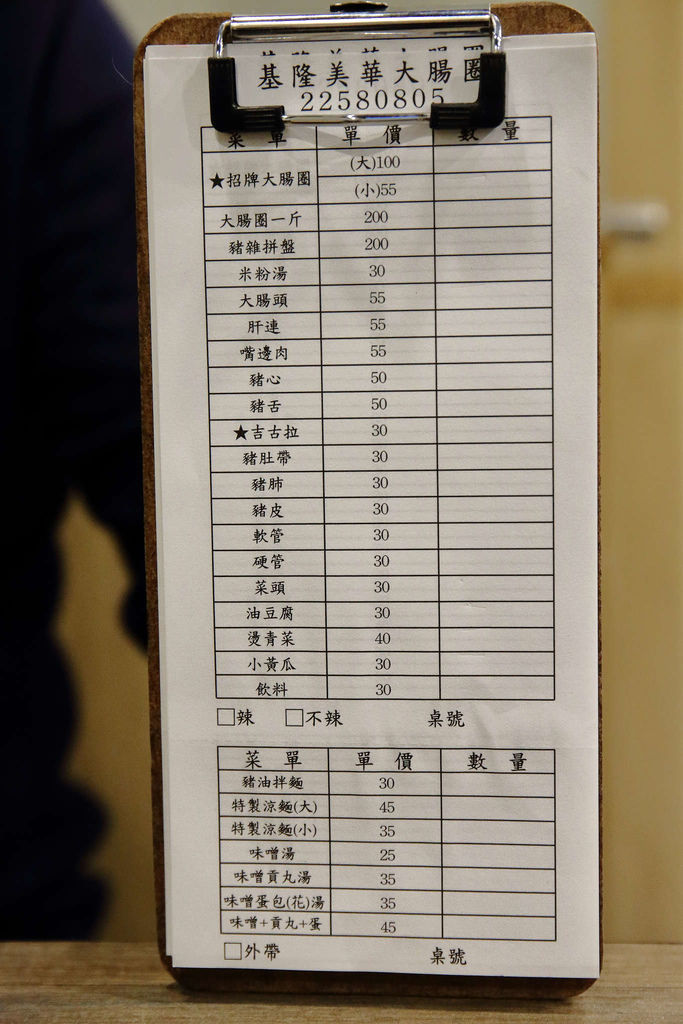 基隆美華大腸圈
22580805
菜單 單價 數量
★招牌大腸圈 (大)100
(小)55
大腸圈一斤 200
豬雜拼盤 200
米粉湯 30
大腸頭 55
肝連 55
嘴邊肉 55
豬心 50
豬舌 50
★吉古拉 30
豬肚帶 30
豬肺 30
豬皮 30
軟管 30
硬管 30
菜頭 30
油豆腐 30
燙青菜 40
小黃瓜 30
飲料 30
□辣 □不辣 桌號
菜單 單價 數量
豬油拌麵 30
特製涼麵(大) 45
特製涼麵(小) 35
味噌湯 25
味噌貢丸湯 35
味噌蛋包(花)湯 35
味噌+貢丸+蛋 45
□外帶 桌號